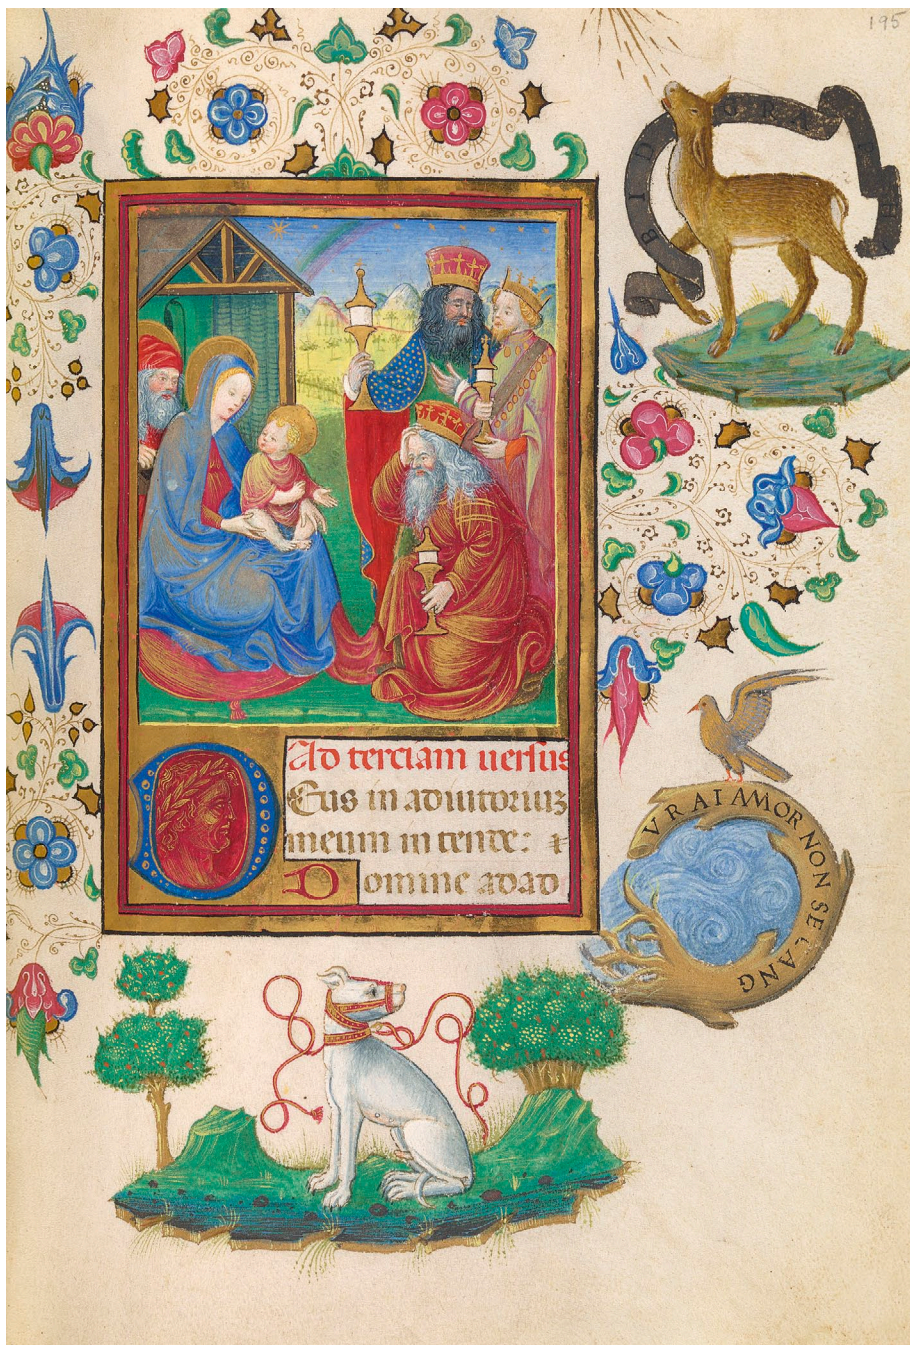 195
BID CRAF
Ad terciam uersus
Eus in adiutoriuz
meum intende:
Domine adad
VRAI AMOR NON SE CANG